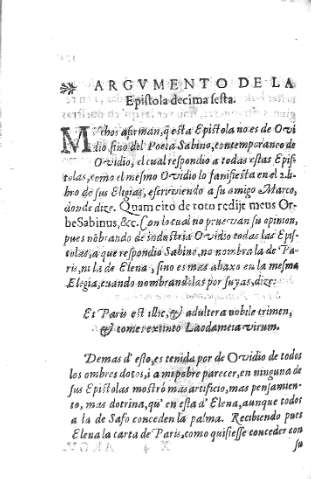 ARGVMENTO DE LA
Epistola decima sesta.
MVchos afirman, q̃ esta Epistola no es de Ovi
dio sino del Poeta Sabino, contemporaneo de
Ovidio, el cual respondio a todas estas Epis
tolas, como el mesmo Ovidio lo fanifiesta en el 2. li
bro de sus Elegias, escriviendo a su amigo Marco,
donde dize. Quam cito de toto redijt meus Or
be Sabinus, &c. Con lo cual no pruevan su opinion,
pues nõbrando de industria Ovidio todas las Epis
tolas, a que respondio Sabino, no nombra la de Pa
ris, ni la de Elena, sino es mas abaxo en la mesma
Elegia, cuando nombrandolas por suyas, dize:
Et Paris est illic, & adultera nobile crimen,
& comes extincto Laodameia virum.
Demas d' esto, es tenida por de Ovidio de todos
los ombres dotos, i a mi pobre parecer, en ninguna de
sus Epistolas mostró mas artificio, mas pensamien
to, mas dotrina, qu' en esta d' Elena, aunque todos
a la de Safo conceden la palma. Recibiendo pues
Elena la carta de Paris, como quisiesse conceder con
su